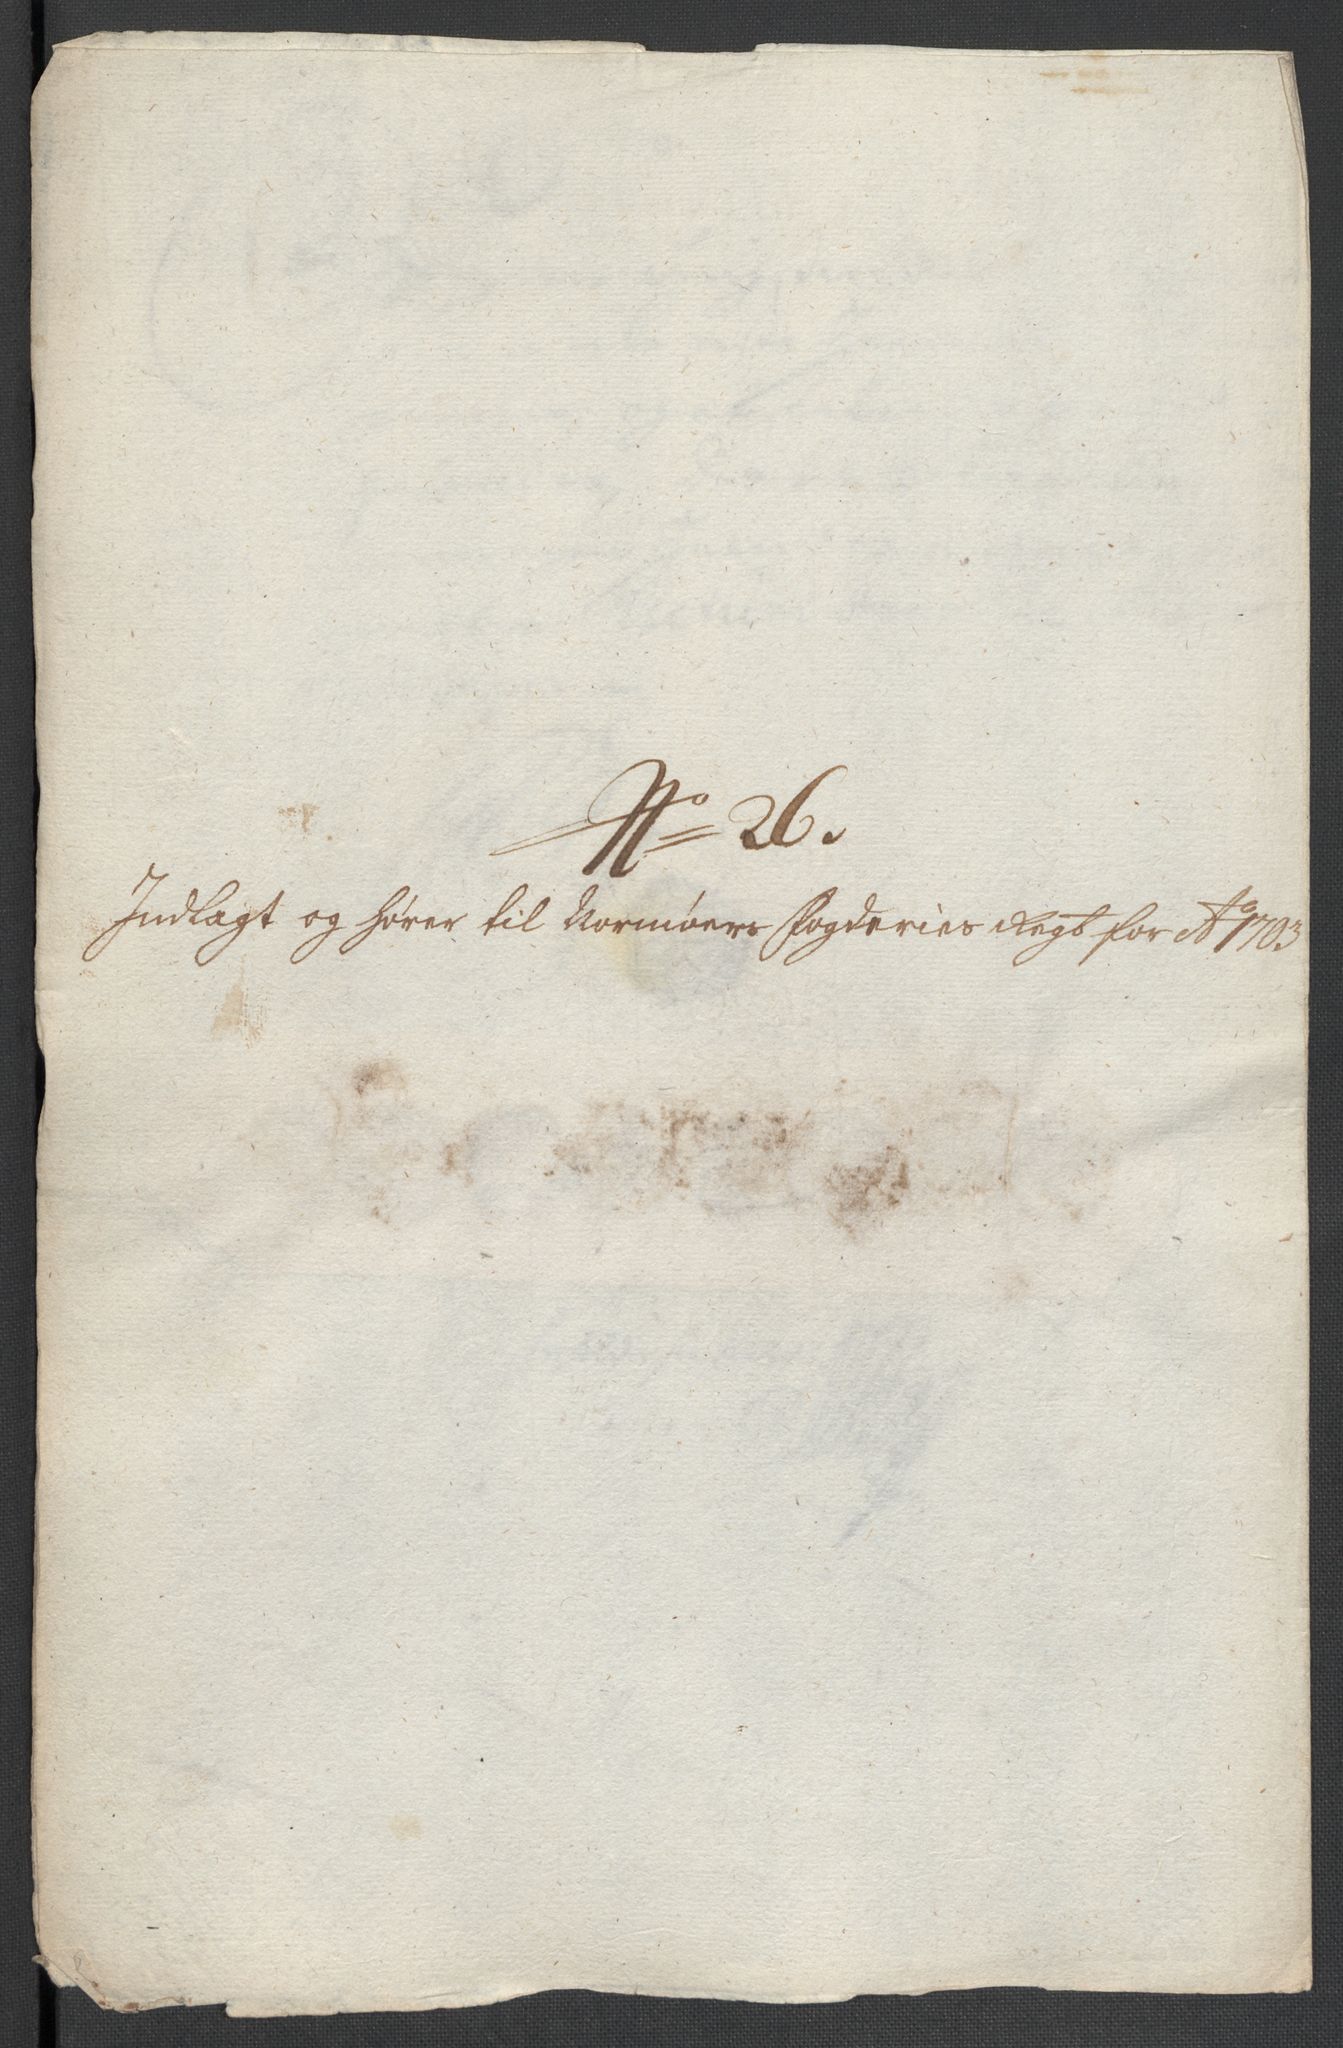 No 26.
Indlagt og hører til Normøers Fogderies Regb for Ao 1703